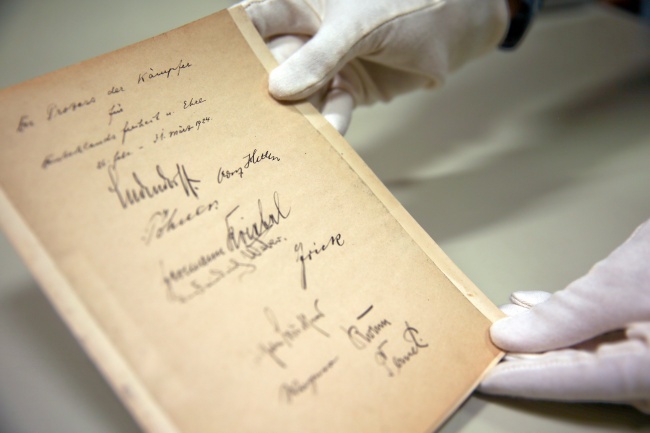 Der Prozess der Kämpfer
für
Deutschlands Freiheit u. Ehre
26. Febr. - 31. März 1924.
Ludendorff. Adolf Hitler
Pöhner
Hermann Kriebel
Weber.
Frick
Brückner
Röhm
Wagner
Pernet